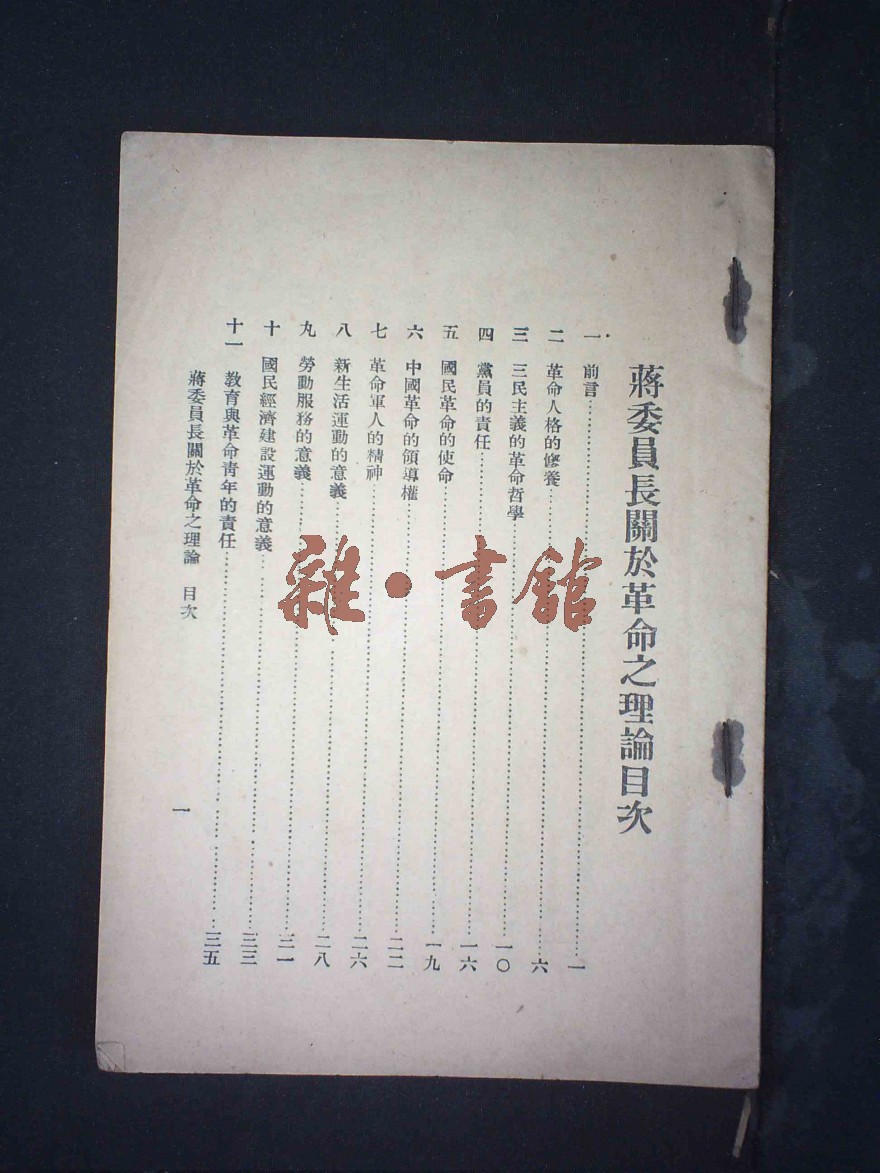 蔣委員長關於革命之理論目次
一 前言……一
二 革命人格的修養……六
三 三民主義的革命哲學……一〇
四 黨員的責任……一六
五 國民革命的使命……一九
六 中國革命的領導權……二二
七 革命軍人的精神……二六
八 新生活運動的意義……二八
九 勞動服務的意義……三一
十 國民經濟建設運動的意義……三三
十一 教育與革命青年的責任……三五
蔣委員長關於革命之理論 目次
一
雜·書館